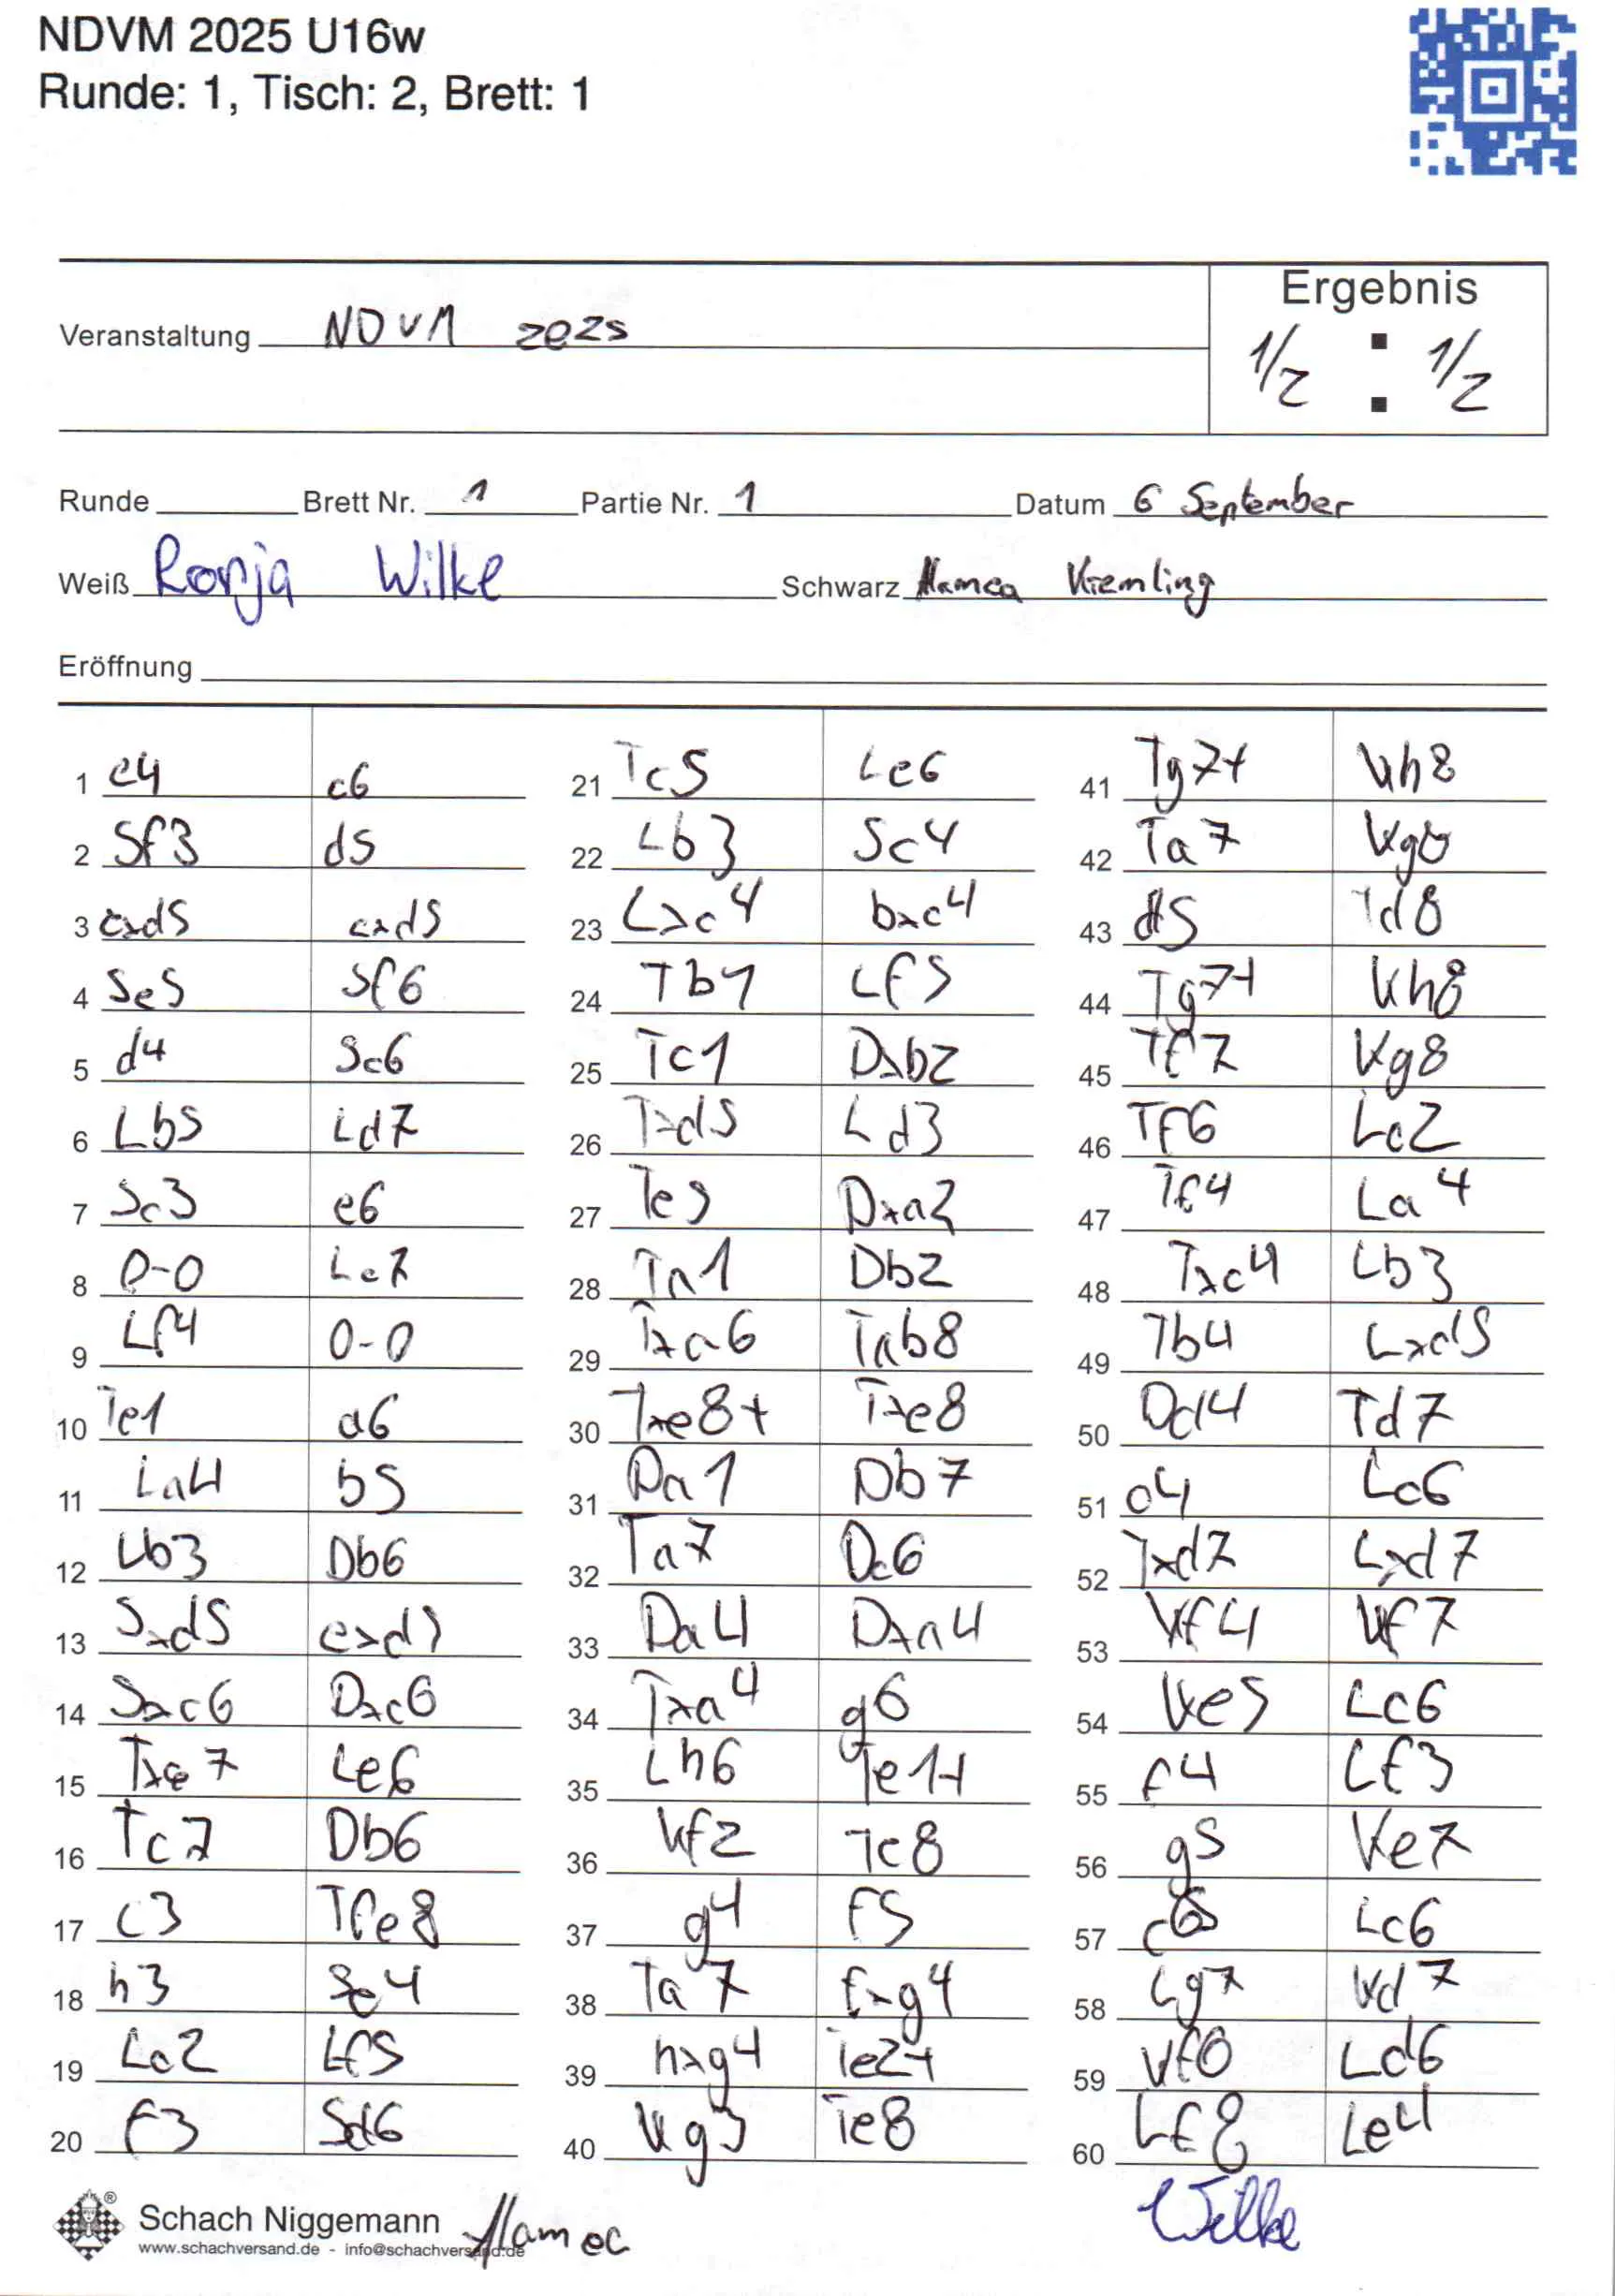 NDVM 2025 U16w
Runde: 1, Tisch: 2, Brett: 1
Ergebnis
Veranstaltung NDVM 2025
1/2 : 1/2
Runde Brett Nr. 1 Partie Nr. 1 Datum 6 September
Weiß Ronja Wilke Schwarz Kremling
Eröffnung
1 e4 c6
2 Sf3 d5
3 exd5 cxd5
4 Se5 Sf6
5 d4 Sc6
6 Lb5 Ld7
7 Sc3 e6
8 0-0 Le7
9 Lf4 0-0
10 Te1 a6
11 La4 b5
12 Lb3 Db6
13 Sxd5 exd5
14 Sxc6 Dxc6
15 Txe7 Le6
16 Tc7 Db6
17 c3 Tfe8
18 h3 Se4
19 Lc2 Lf5
20 f3 Sd6
21 Tc5 Le6
22 Lb3 Sc4
23 Lxc4 bxc4
24 Tb1 Lf5
25 Tc1 Dxb2
26 Txd5 Ld3
27 Te5 Dxa2
28 Ta1 Db2
29 Txa6 Tab8
30 Txe8+ Txe8
31 Da1 Db7
32 Ta7 Dc6
33 Da4 Dxa4
34 Txa4 g6
35 Lh6 Te1+
36 Kf2 Te8
37 g4 f5
38 Ta7 fxg4
39 hxg4 Te2+
40 Kg3 Te8
41 Tg7+ Kh8
42 Ta7 Kg8
43 d5 Td8
44 Tg7+ Kh8
45 Tf7 Kg8
46 Tf6 Lc2
47 Tf4 La4
48 Txc4 Lb3
49 Tb4 Lxd5
50 Dd4 Td7
51 c4 Lc6
52 Txd7 Lxd7
53 Kf4 Kf7
54 Ke5 Lc6
55 f4 Lf3
56 g5 Ke7
57 Lc6
58 Lg7 Kd7
59 Kf6 Ld6
60 Lf8 Le4
Schach Niggemann
www.schachversand.de - info@schachversand.de
Wilke